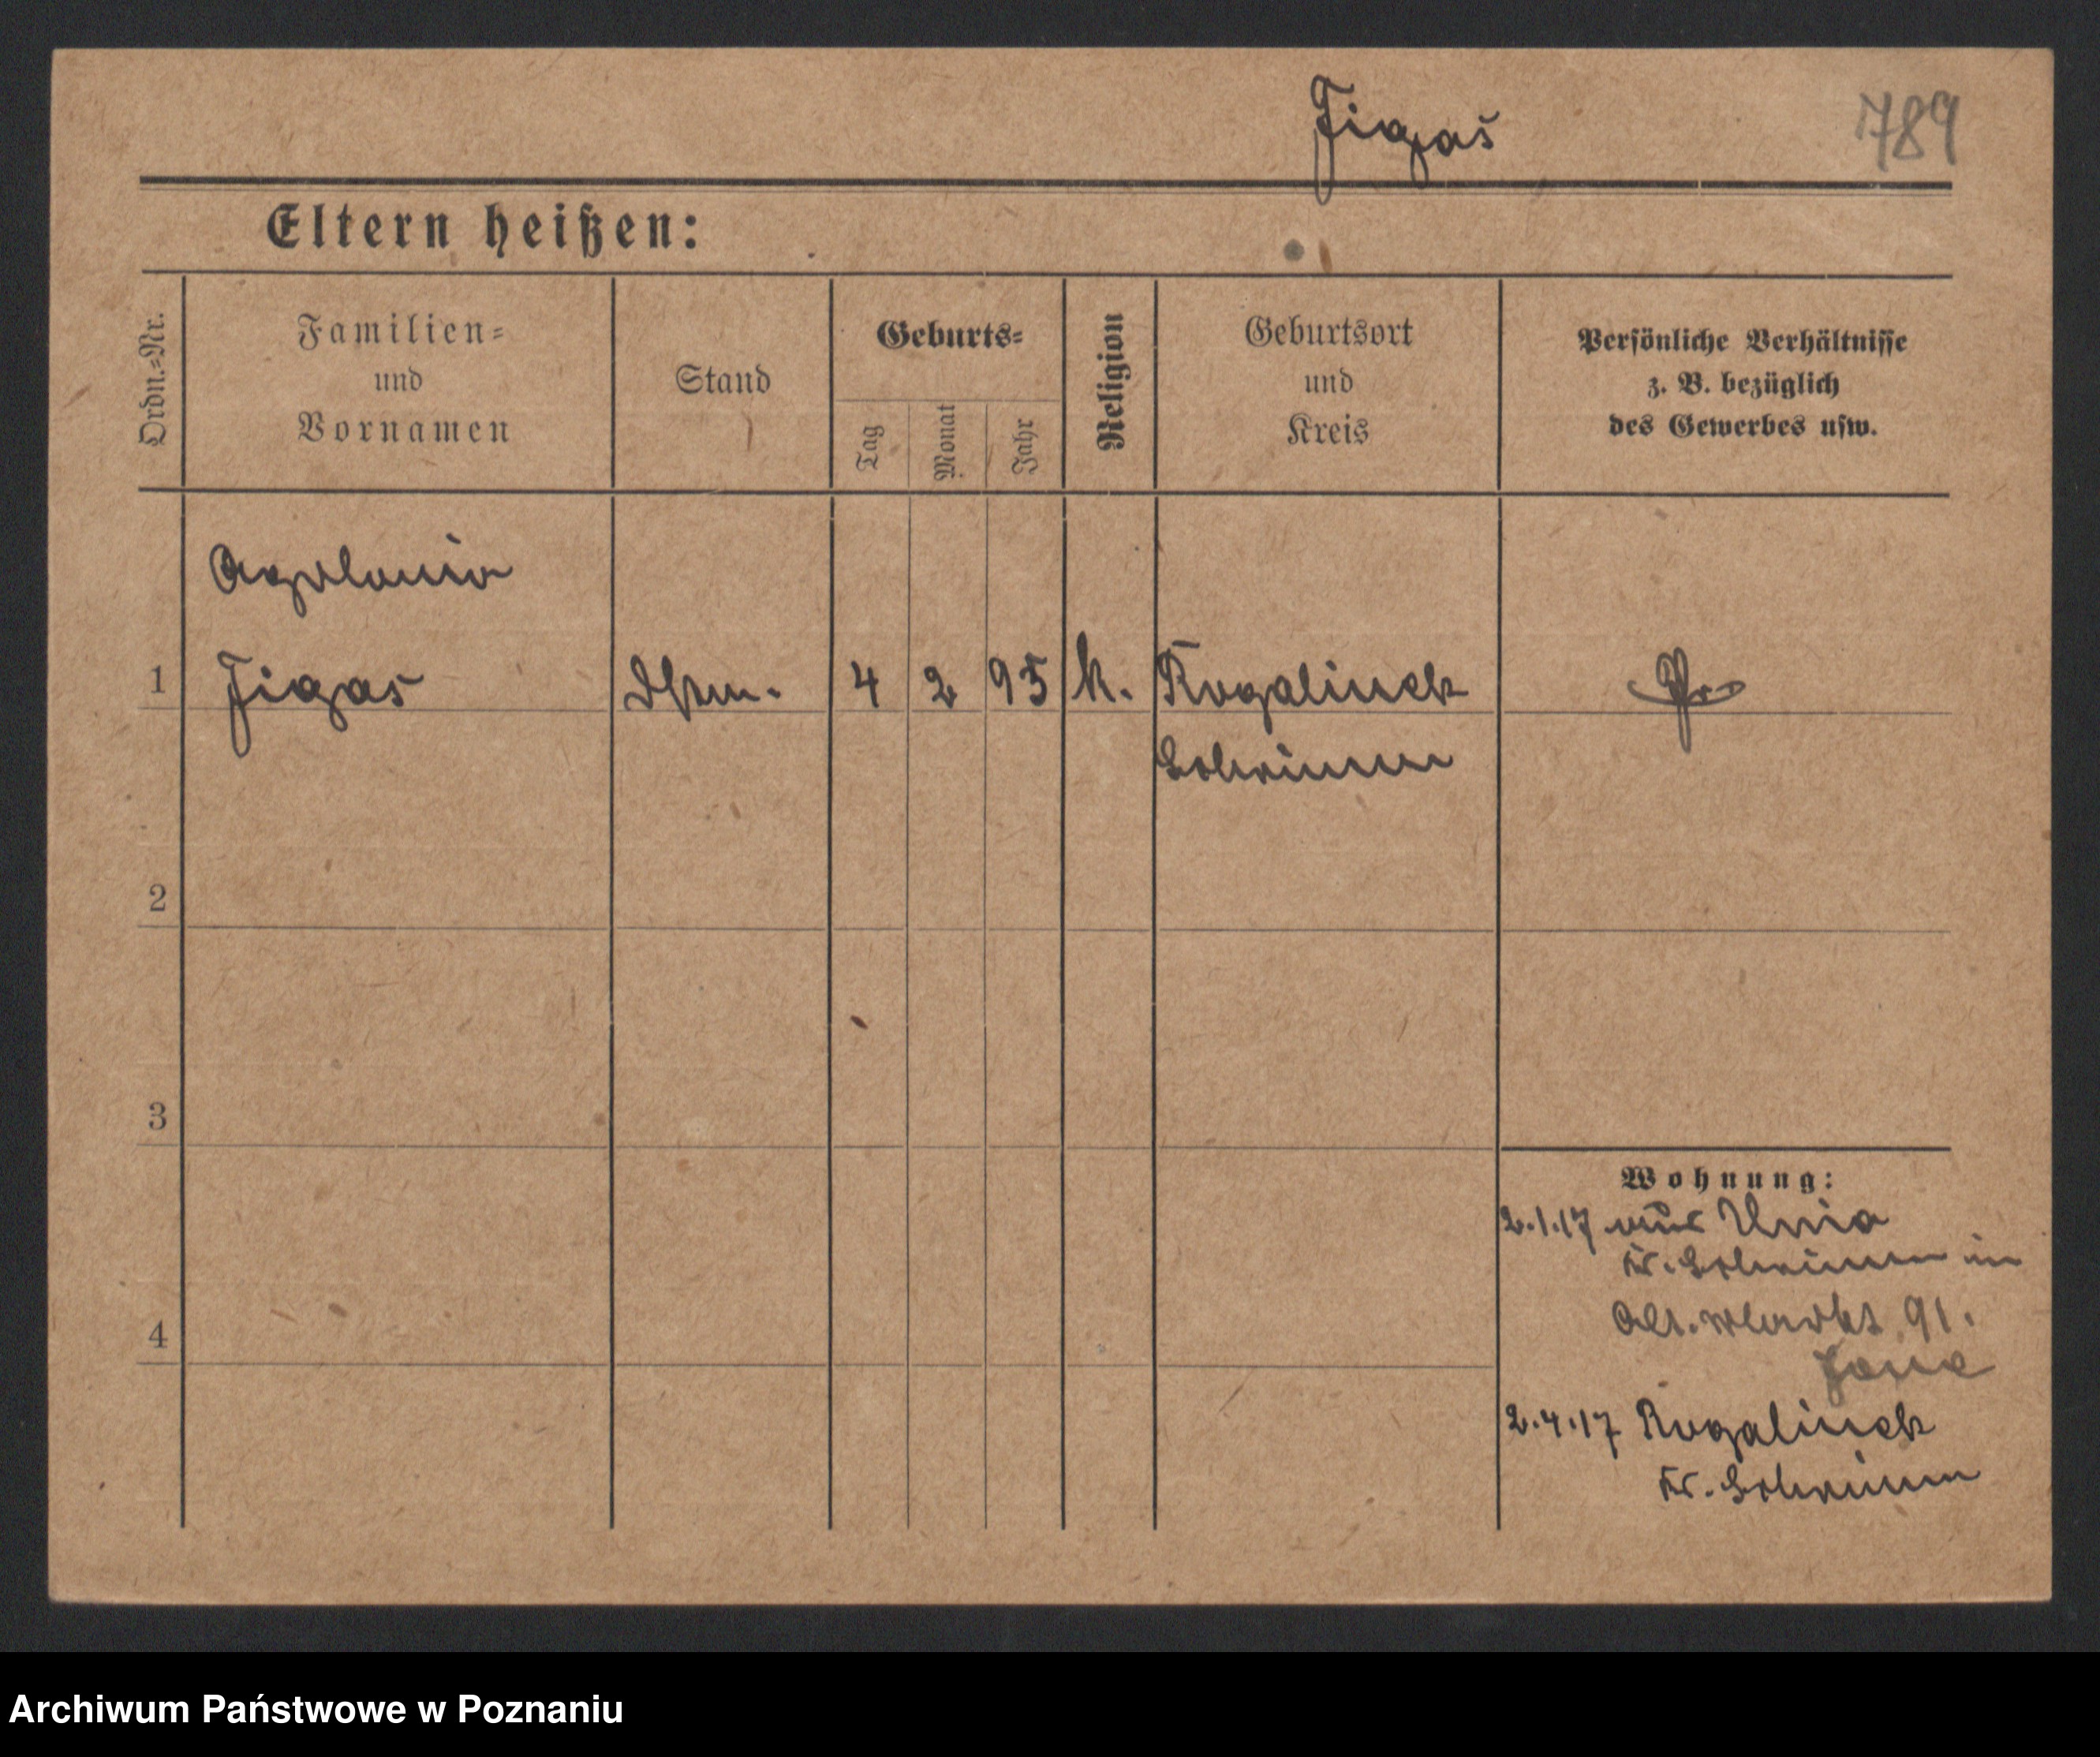 Figas
789
Eltern heißen:
Ordn.=Nr.
Familien=
und
Vornamen
Stand
Geburts=
Tag
Monat
Jahr
Religion
Geburtsort
und
Kreis
Persönliche Verhältnisse
z. B. bezüglich
des Gewerbes usw.
Apolonia
1 Figas 4 2 95 k. Rogalinek Pr
Schrimm
2
3
Wohnung:
2.1.17 aus Unia
Kr. Schrimm in
Alt. Markt 91.
4
2.4.17 Rogalinek
Kr. Schrimm
Archiwum Państwowe w Poznaniu